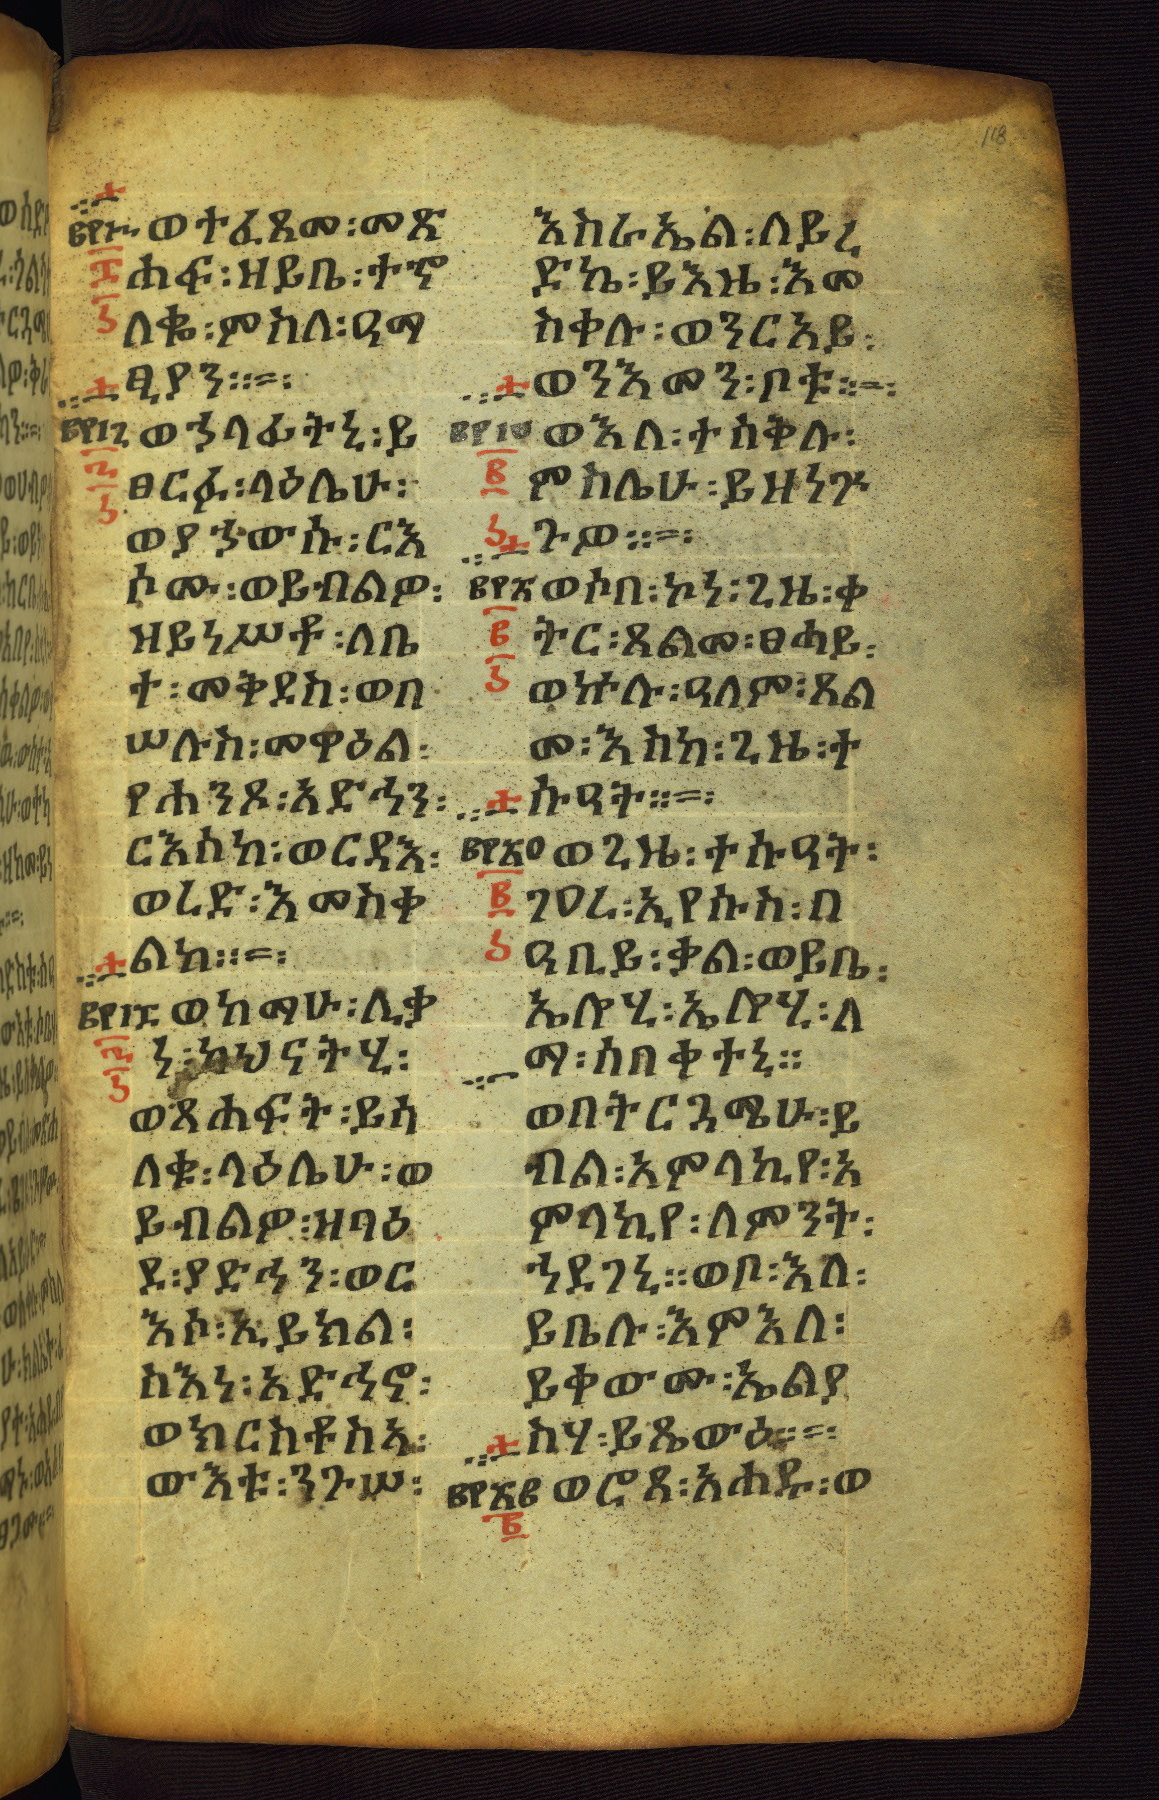 118
፪፻፲፮ ወተፈጸመ፡መጽ
ሐፍ፡ዘይቤ፡ተኆ
ለቈ፡ምስለ፡ዓማ
ፂያን።=፡
ወኃላፊትኒ፡ይ
ፀርፉ፡ላዕሌሁ፡
ወያኃውሱ፡ርእ
ሶሙ፡ወይብልዎ፡
ዘይነሥቶ፡ለቤ
ተ፡መቅደስ፡ወበ
ሠሉስ፡መዋዕል፡
የሐንጾ፡አድኅን፡
ርእስከ፡ወርዳእ፡
ወረድ፡እመስቀ
ልከ።=፡
ወከማሁ፡ሊቃ
ነ፡ካህናትሂ፡
ወጸሐፍት፡ይሳ
ለቁ፡ላዕሌሁ፡ወ
ይብልዎ፡ዘባዕ
ደ፡ያድኅን፡ወር
እሶ፡ኢይክል፡
ከእነ፡አድኅኖ፡
ወክርስቶስኣ፡
ውእቱ፡ንጉሠ፡
እስራኤል፡ለይረ
ድኬ፡ይእዜ፡እመ
ስቀሉ፡ወንርአይ፡
ወንእመን፡ቦቱ።=፡
ወእለ፡ተሰቅሉ፡
ምስሌሁ፡ይዘነጕ
ጉዎ።=፡
ወሶበ፡ኮነ፡ጊዜ፡ቀ
ትር፡ጸልመ፡ፀሓይ፡
ወኵሉ፡ዓለም፡ጸል
መ፡እስከ፡ጊዜ፡ተ
ሱዓት።=፡
ወጊዜ፡ተሱዓት፡
ገዐረ፡ኢየሱስ፡በ
ዓቢይ፡ቃል፡ወይቤ፡
ኤሎሂ፡ኤሎሂ፡ለ
ማ፡ሰበቀተኒ።
ወበትርጓሜሁ፡ይ
ብል፡አምላኪየ፡አ
ምላኪየ፡ለምንት፡
ኀደገኒ።ወቦ፡እለ፡
ይቤሉ፡እምእለ፡
ይቀውሙ፡ኤልያ
ስሃ፡ይጼውዕ።=፡
ወሮጸ፡አሐዱ፡ወ